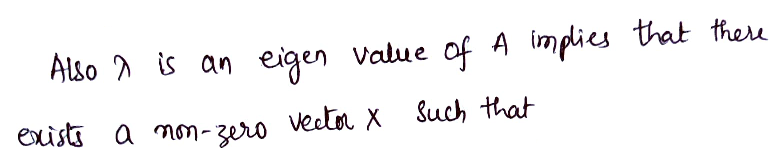 Also λ is an eigen value of A implies that there
exists a non-zero vector X such that